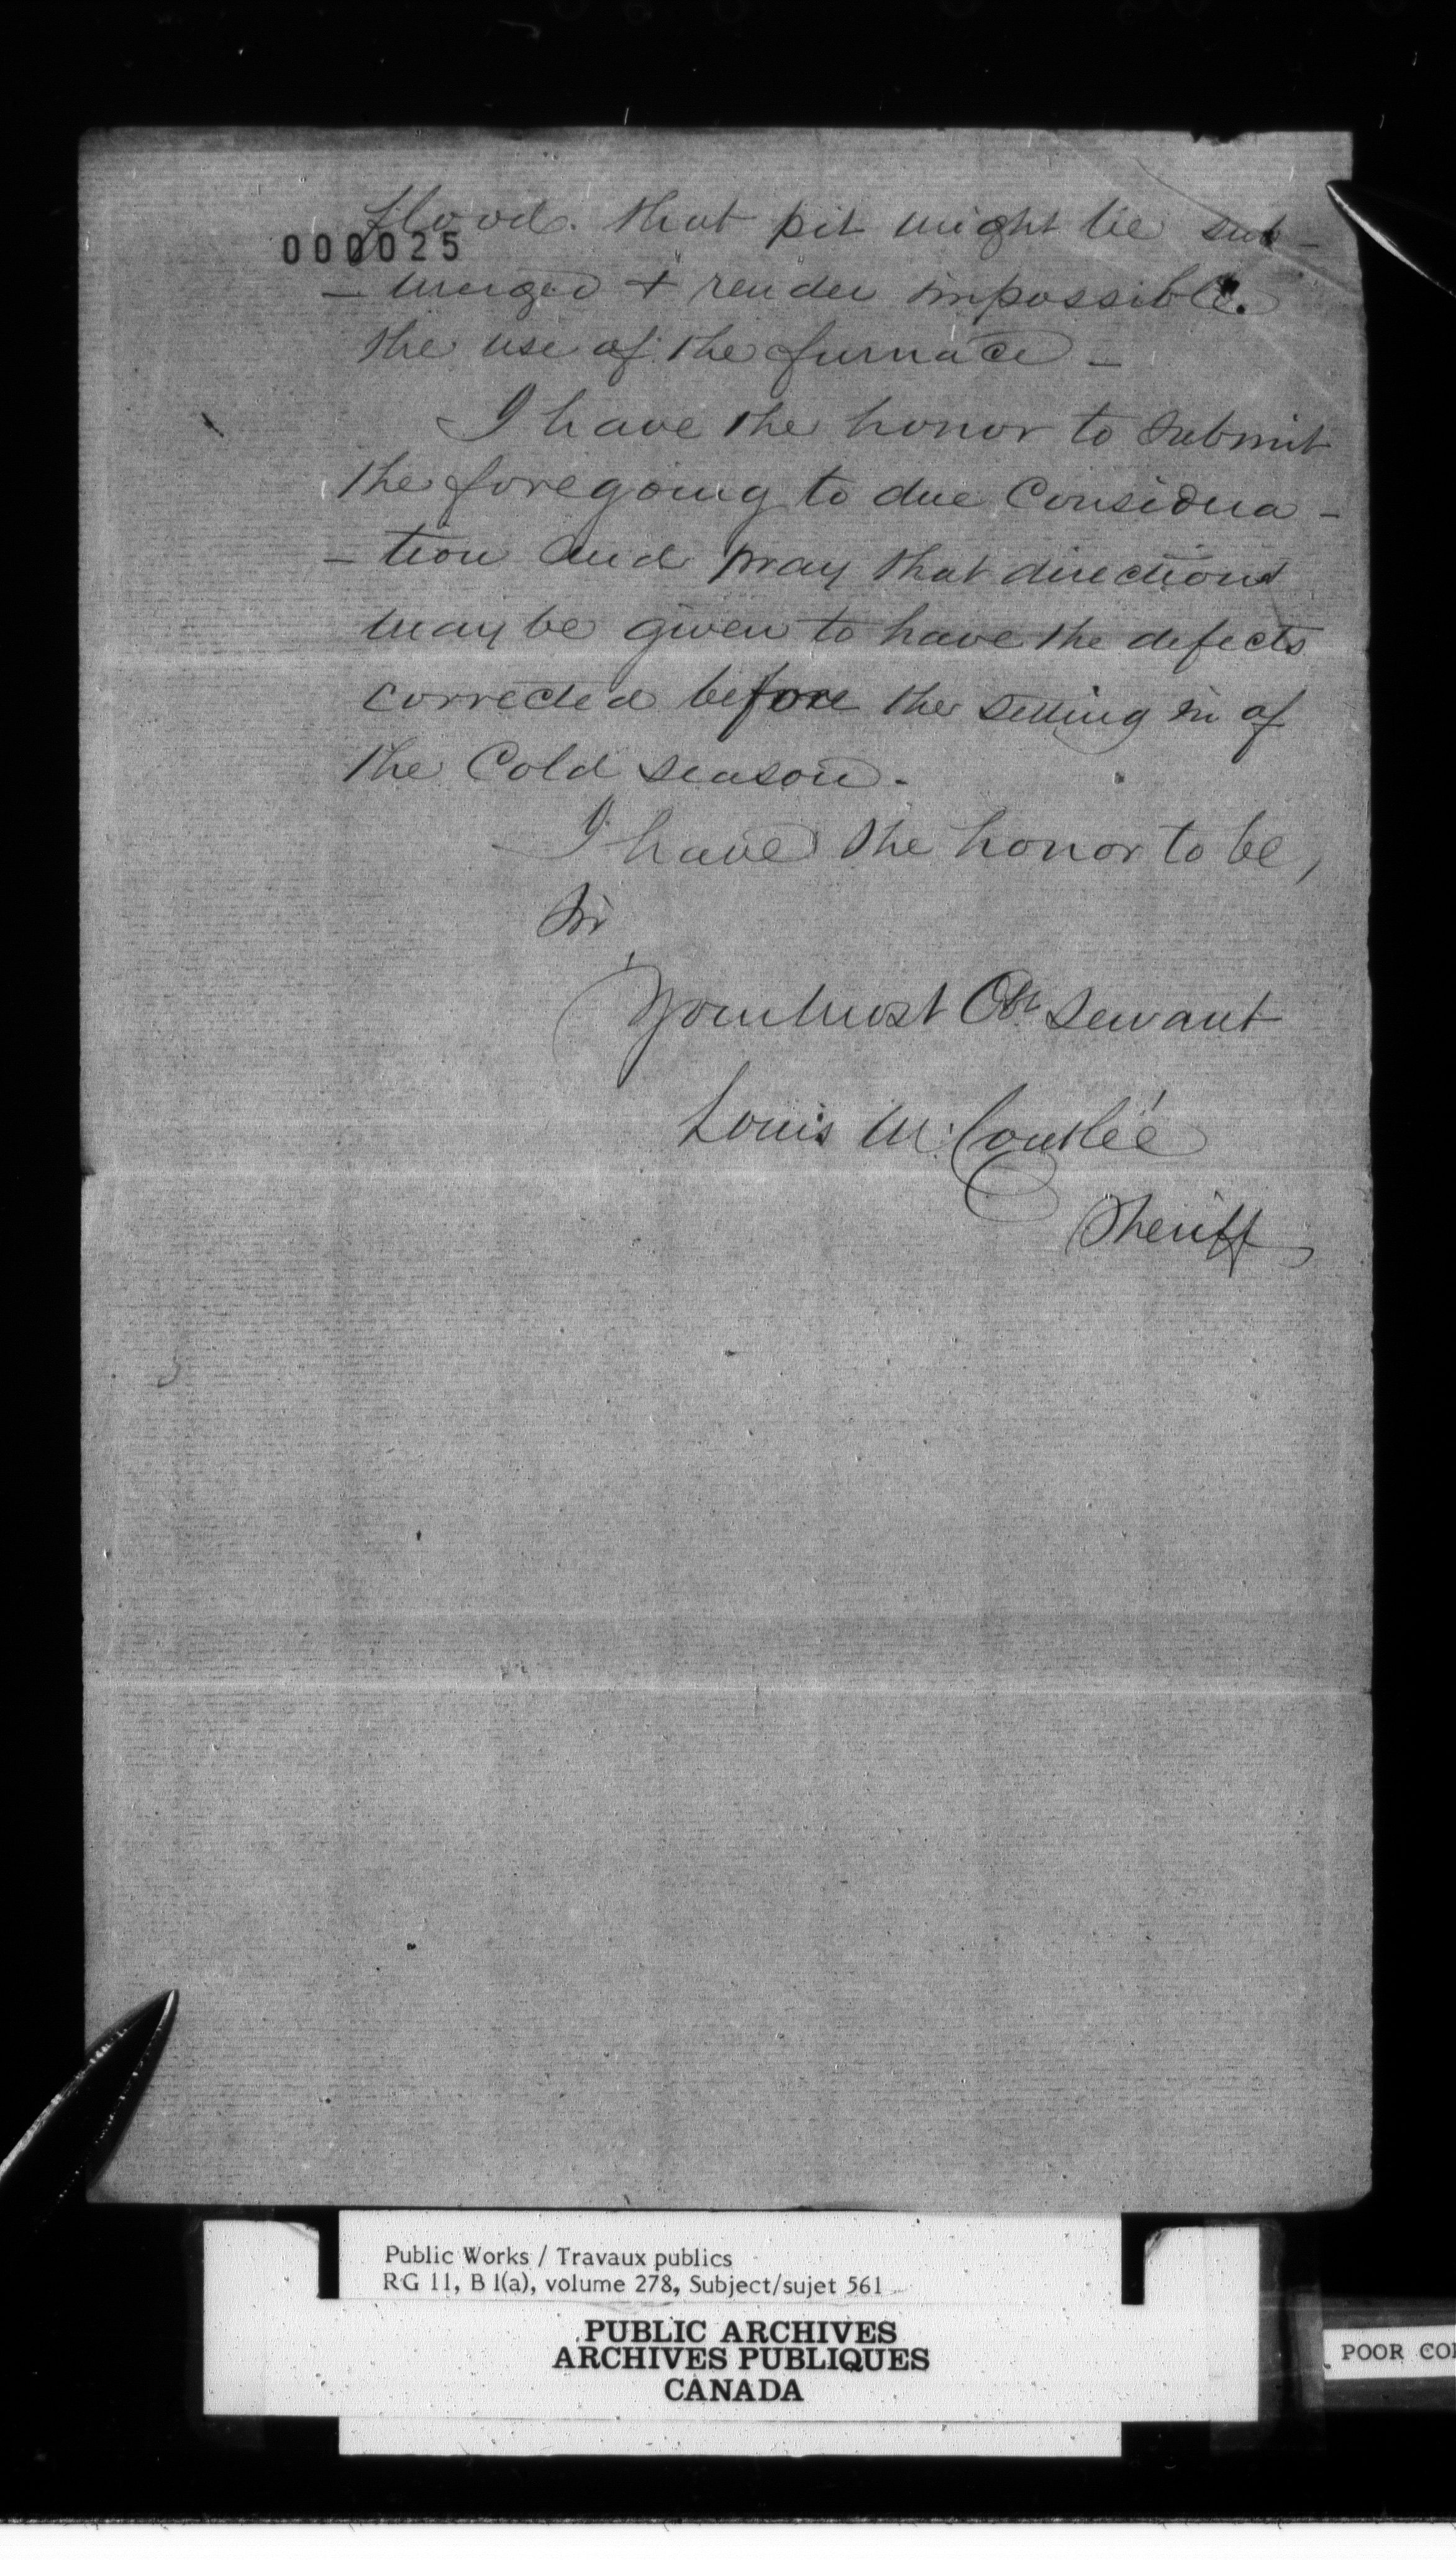 flood. that pit might be sub-
000025
- merged + render impossible.
the use of the furnace -
I have the honor to submit
the foregoing to due Considera-
- tion and pray that directions
may be given to have the defects
corrected before the setting in of
the Cold season.
I have the honor to be,
Sir
Your most Obt. servant
Louis M. Coutlée
Sheriff
Public Works / Travaux publics
RG 11, B 1(a), volume 278, Subject/sujet 561
PUBLIC ARCHIVES
ARCHIVES PUBLIQUES
CANADA
POOR